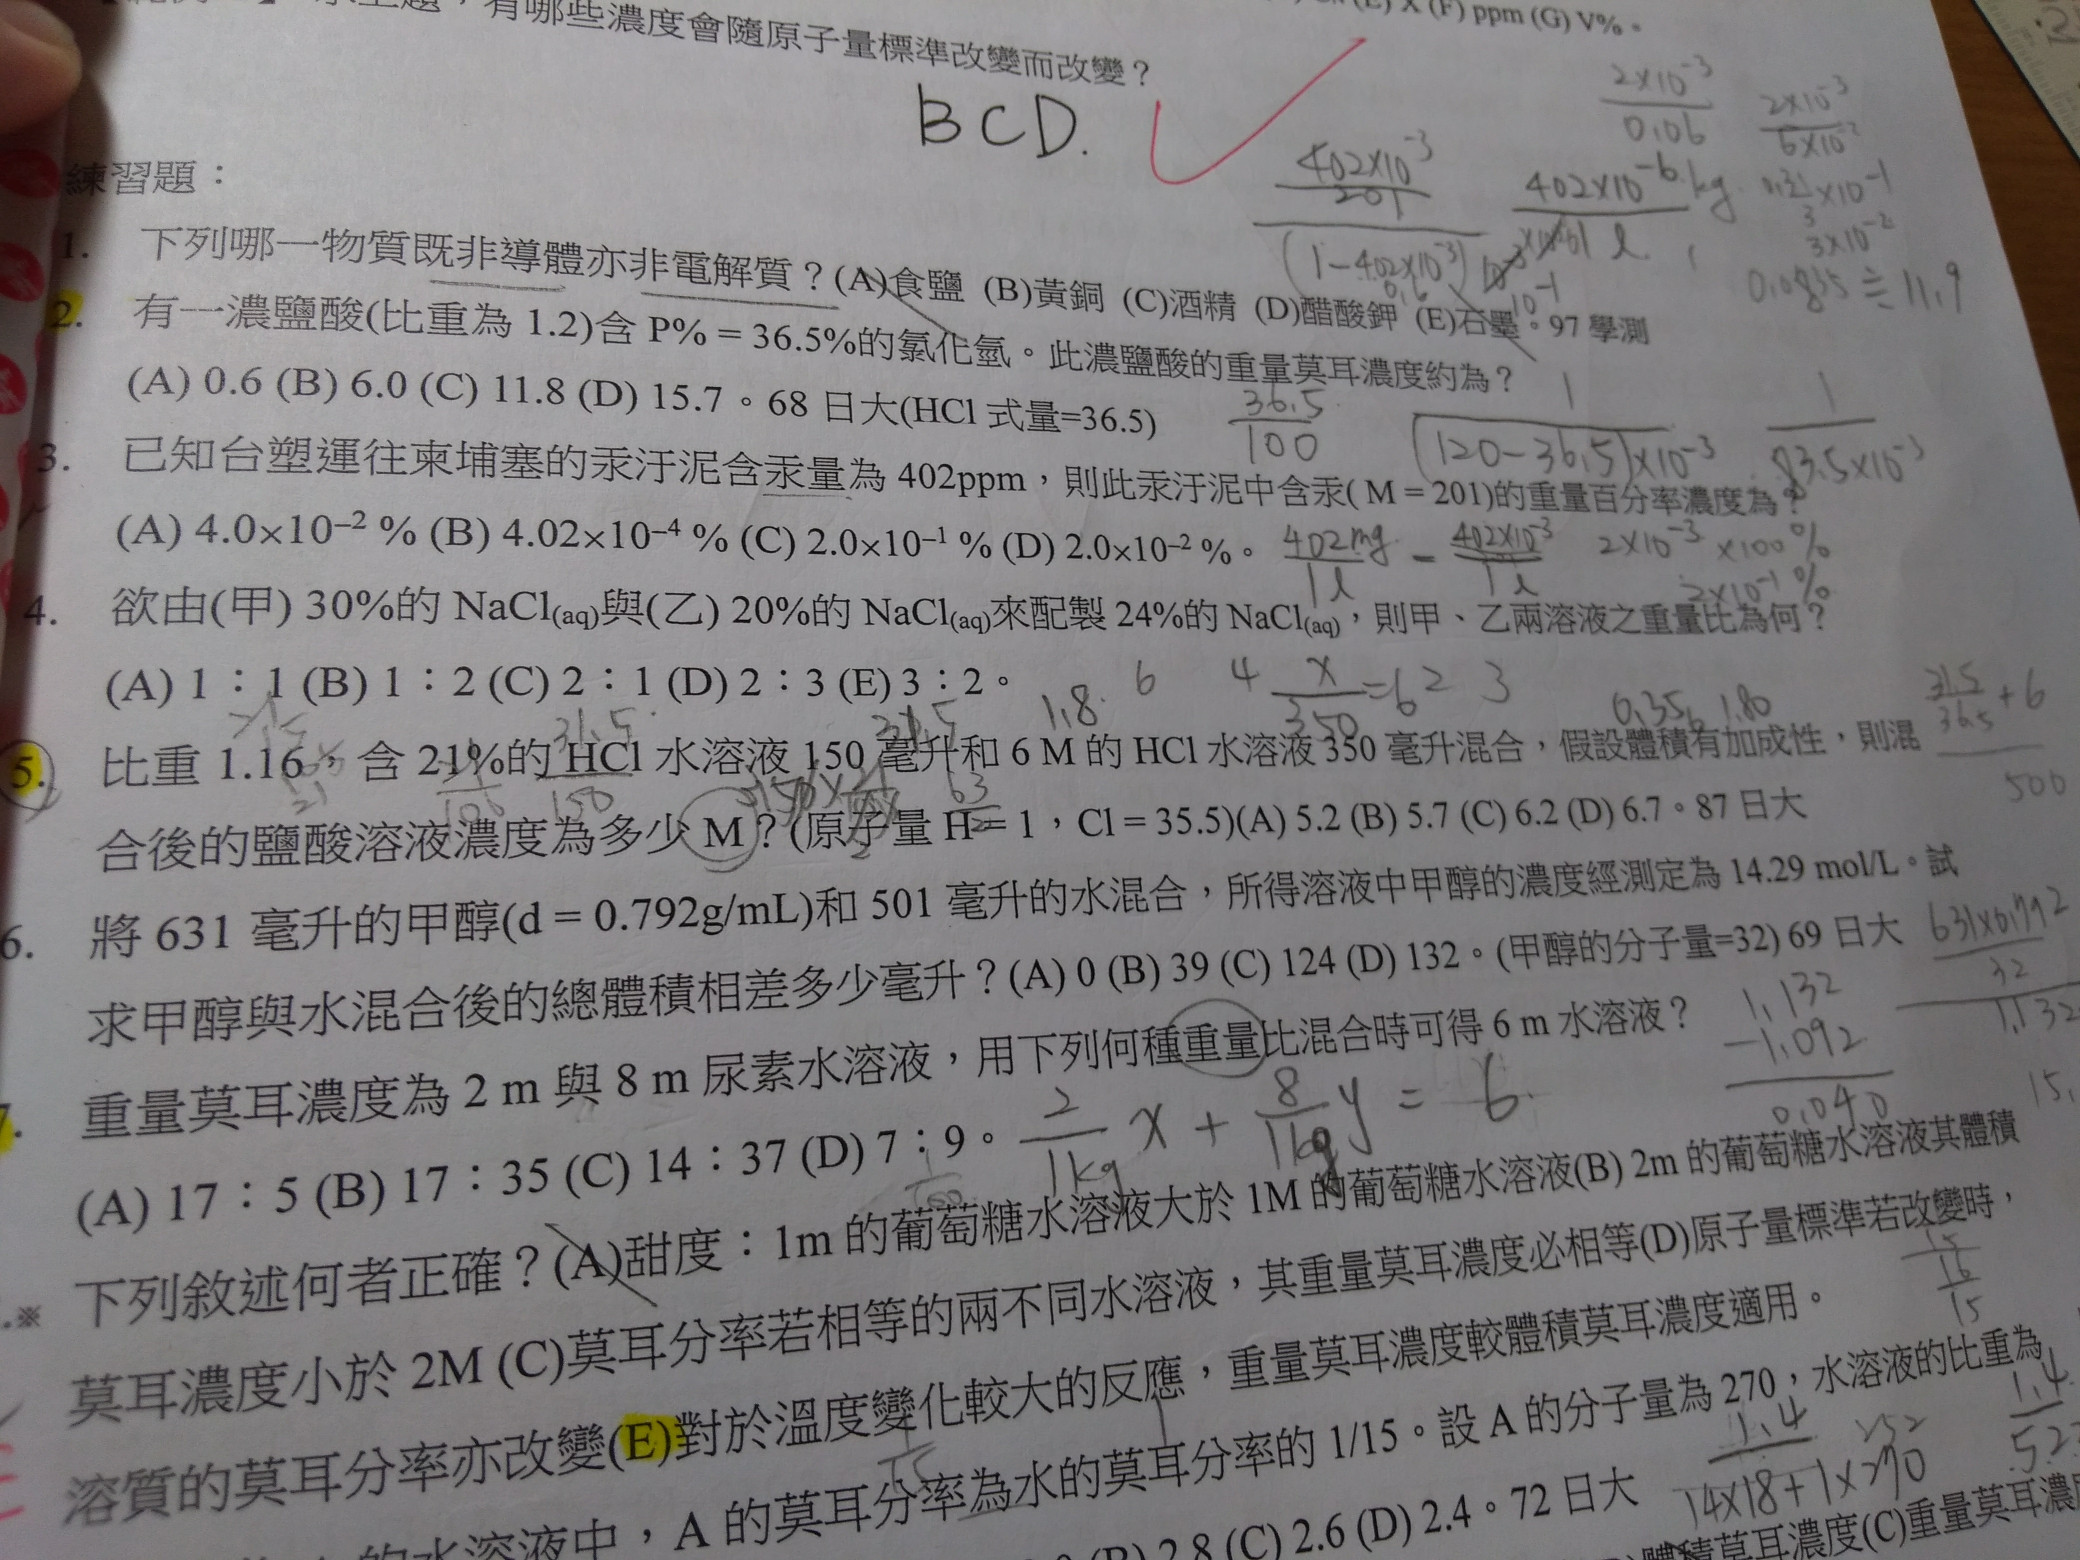 有哪些濃度會隨原子量標準改變而改變？
(E) X (F) ppm (G) V%。
BCD.
練習題：
1. 下列哪一物質既非導體亦非電解質？(A)食鹽 (B)黃銅 (C)酒精 (D)醋酸鉀 (E)石墨。97 學測
2. 有一濃鹽酸(比重為 1.2)含 P% = 36.5%的氯化氫。此濃鹽酸的重量莫耳濃度約為？
(A) 0.6 (B) 6.0 (C) 11.8 (D) 15.7。68 日大(HCl 式量=36.5)
3. 已知台塑運往柬埔塞的汞汙泥含汞量為 402ppm，則此汞汙泥中含汞( M = 201)的重量百分率濃度為？
(A) 4.0×10⁻² % (B) 4.02×10⁻⁴ % (C) 2.0×10⁻¹ % (D) 2.0×10⁻² %。
4. 欲由(甲) 30%的 NaCl(aq)與(乙) 20%的 NaCl(aq)來配製 24%的 NaCl(aq)，則甲、乙兩溶液之重量比為何？
(A) 1：1 (B) 1：2 (C) 2：1 (D) 2：3 (E) 3：2。
5. 比重 1.16，含 21%的 HCl 水溶液 150 毫升和 6 M 的 HCl 水溶液 350 毫升混合，假設體積有加成性，則混
合後的鹽酸溶液濃度為多少 M？(原子量 H = 1，Cl = 35.5)(A) 5.2 (B) 5.7 (C) 6.2 (D) 6.7。87 日大
6. 將 631 毫升的甲醇(d = 0.792g/mL)和 501 毫升的水混合，所得溶液中甲醇的濃度經測定為 14.29 mol/L。試
求甲醇與水混合後的總體積相差多少毫升？(A) 0 (B) 39 (C) 124 (D) 132。(甲醇的分子量=32) 69 日大
7. 重量莫耳濃度為 2 m 與 8 m 尿素水溶液，用下列何種重量比混合時可得 6 m 水溶液？
(A) 17：5 (B) 17：35 (C) 14：37 (D) 7：9。
2/1kg x + 8/1kg y = 6
※ 下列敘述何者正確？(A)甜度：1m 的葡萄糖水溶液大於 1M 的葡萄糖水溶液(B) 2m 的葡萄糖水溶液其體積
莫耳濃度小於 2M (C)莫耳分率若相等的兩不同水溶液，其重量莫耳濃度必相等(D)原子量標準若改變時，
溶質的莫耳分率亦改變(E)對於溫度變化較大的反應，重量莫耳濃度較體積莫耳濃度適用。
的水溶液中，A 的莫耳分率為水的莫耳分率的 1/15。設 A 的分子量為 270，水溶液的比重為
(B) 2.8 (C) 2.6 (D) 2.4。72 日大
莫耳濃度(C)重量莫耳濃
2×10⁻³/0.06
2×10⁻³/6×10⁻²
402×10⁻³/201
402×10⁻⁶ kg
3×10⁻²
0.0835 ≒ 11.9
36.5/100
1/(120-36.5)×10⁻³
1/83.5×10⁻³
402mg/1l = 402×10⁻³/1l
2×10⁻³ ×100%
2×10⁻¹ %
6 4 x/350 = 6 2 3
1.8
31.5/36.5 + 6
500
631×0.792/32
1.132
1.132
-1.092
0.040
1.4/14×18+1×270